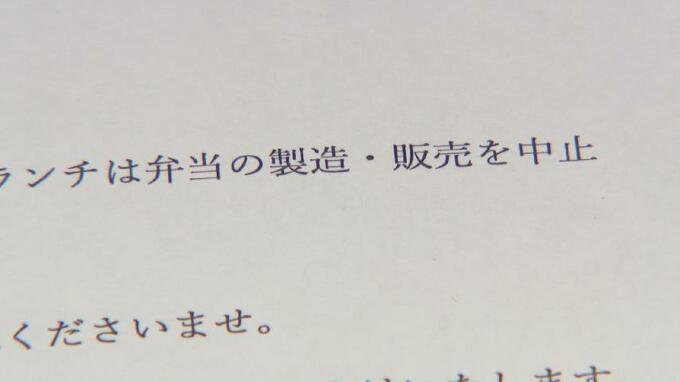 ランチは弁当の製造・販売を中止
くださいませ。
いたします